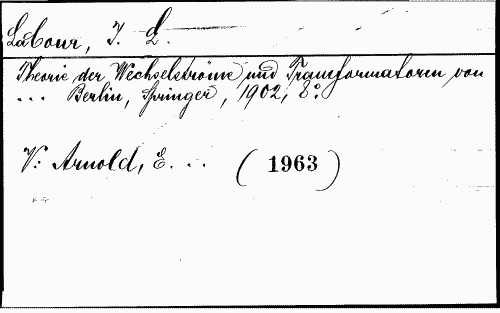 LaCour, J. L.
Theorie der Wechselströme und Transformatoren von
... Berlin, Springer, 1902, 8º.
V: Arnold, E. ... (1963)